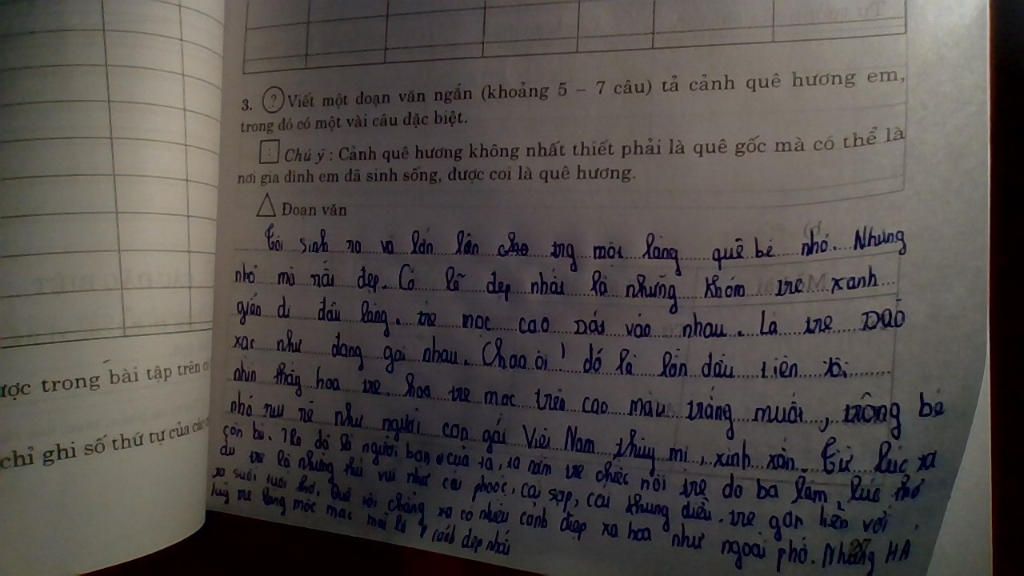 3. ? Viết một đoạn văn ngắn (khoảng 5 – 7 câu) tả cảnh quê hương em,
trong đó có một vài câu đặc biệt.
Chú ý : Cảnh quê hương không nhất thiết phải là quê gốc mà có thể là
nơi gia đình em đã sinh sống, được coi là quê hương.
Đoạn văn
Tôi sinh ra và lớn lên trg một làng quê bé nhỏ. Nhưng
nhỏ mà rất đẹp. Có lẽ đẹp nhất là những khóm tre xanh
đầu làng. tre mọc cao vào nhau. Lá tre
xạc như đang gọi nhau. Chao ôi ! đó là lần đầu tiên tôi
nhìn thấy hoa tre. hoa tre mọc trên cao màu trắng muốt, trông bé
nhỏ như người con gái Việt Nam thùy mị, xinh xắn. Từ lúc xa
gắn bó. Tre đó là người bạn của ta, ta nằm tre chiếc nôi tre do bà làm, lúc
tre là những thú vui như cái phoóc, cái sạp, cái khung diều. tre gắn liền với
tuổi thơ. Quê tôi chẳng có nhiều cảnh đẹp xa hoa như ngoài phố. Nhưng HA
lũy tre làng mộc mạc mãi là 1 cách đẹp nhất
27
ược trong bài tập trên
chỉ ghi số thứ tự của các